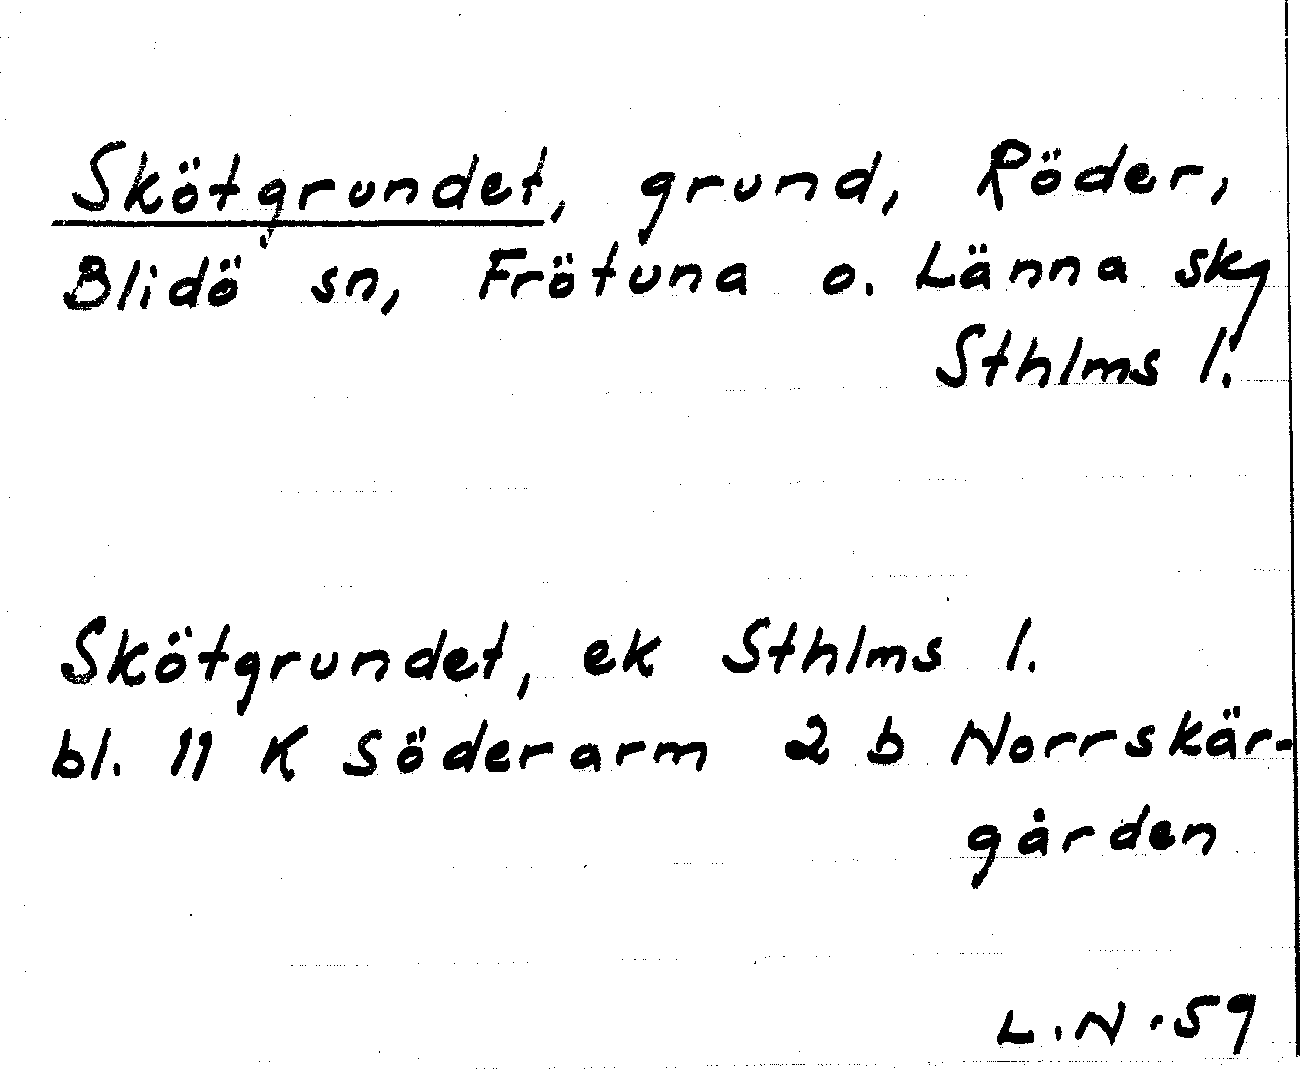 Skötgrundet, grund, Röder,
Blidö sn, Frötuna o. Länna skg
Sthlms l.
Skötgrundet, ek Sthlms l.
bl. 11 K Söderarm 2 b Norrskär-
gården
L.N.59